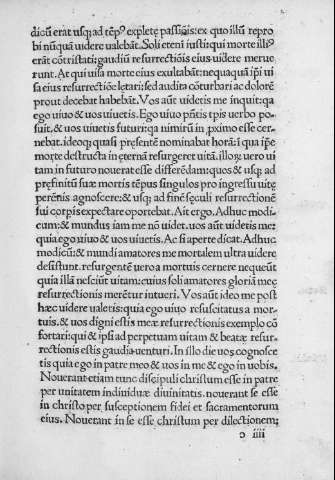 dictū erat usq; ad tēpꝰ expletę passiōis: ex quo illū repro
bi nūquā uidere ualebāt. Soli eteni iusti: qui morte illiꝰ
erāt cōtristati: gaudiū resurrectiōis eius uidere merue
runt. At qui uisa morte eius exultabāt: nequaquā ipi ui
sa eius resurrectiōe lętari: sed audita cōturbari ac dolorē
prout decebat habebāt. Vos aūt uidetis me inquit: qa
ego uiuo & uos uiuetis. Ego uiuo pn̄tis tpis uerbo po-
suit, & uos uiuetis futuri: qa nimirū in ꝓximo esse cer-
nebat. ideoq; quasi pręsentē nominabat horā: i qua ipse
morte destructa in ęternā resurgeret uitā. illoꝝ uero ui
tam in futuro nouerat esse differēdam: quos & usq; ad
pręfinitū suæ mortis tēpus singulos pro ingressu uitę
perēnis agnoscere: & usq; ad finē sęculi resurrectionē
sui corpis expectare oportebat. Ait ergo. Adhuc modi
cum: & mundus iam me nō uidet. uos aūt uidetis me:
quia ego uiuo & uos uiuetis. Ac si aperte dicat. Adhuc
modicū: & mundi amatores me mortalem ultra uidere
desistunt. resurgentē uero a mortuis cernere nequeūt
quia illā nesciūt uitam: cuius soli amatores gloriā meę
resurrectionis merētur intueri. Vos aūt ideo me post
hæc uidere ualetis: quia ego uiuo resuscitatus a mor-
tuis. & uos digni estis meæ resurrectionis exemplo cō
fortari: qui & ipsi ad perpetuam uitam & beatæ resur-
rectionis estis gaudia uenturi. In illo die uos cognosce
tis quia ego in patre meo & uos in me & ego in uobis.
Nouerant etiam tunc discipuli christum esse in patre
per unitatem indiuiduæ diuinitatis. nouerant se esse
in christo per susceptionem fidei et sacramentorum
eius. Nouerant in se esse christum per dilectionem;
ɔ iiii